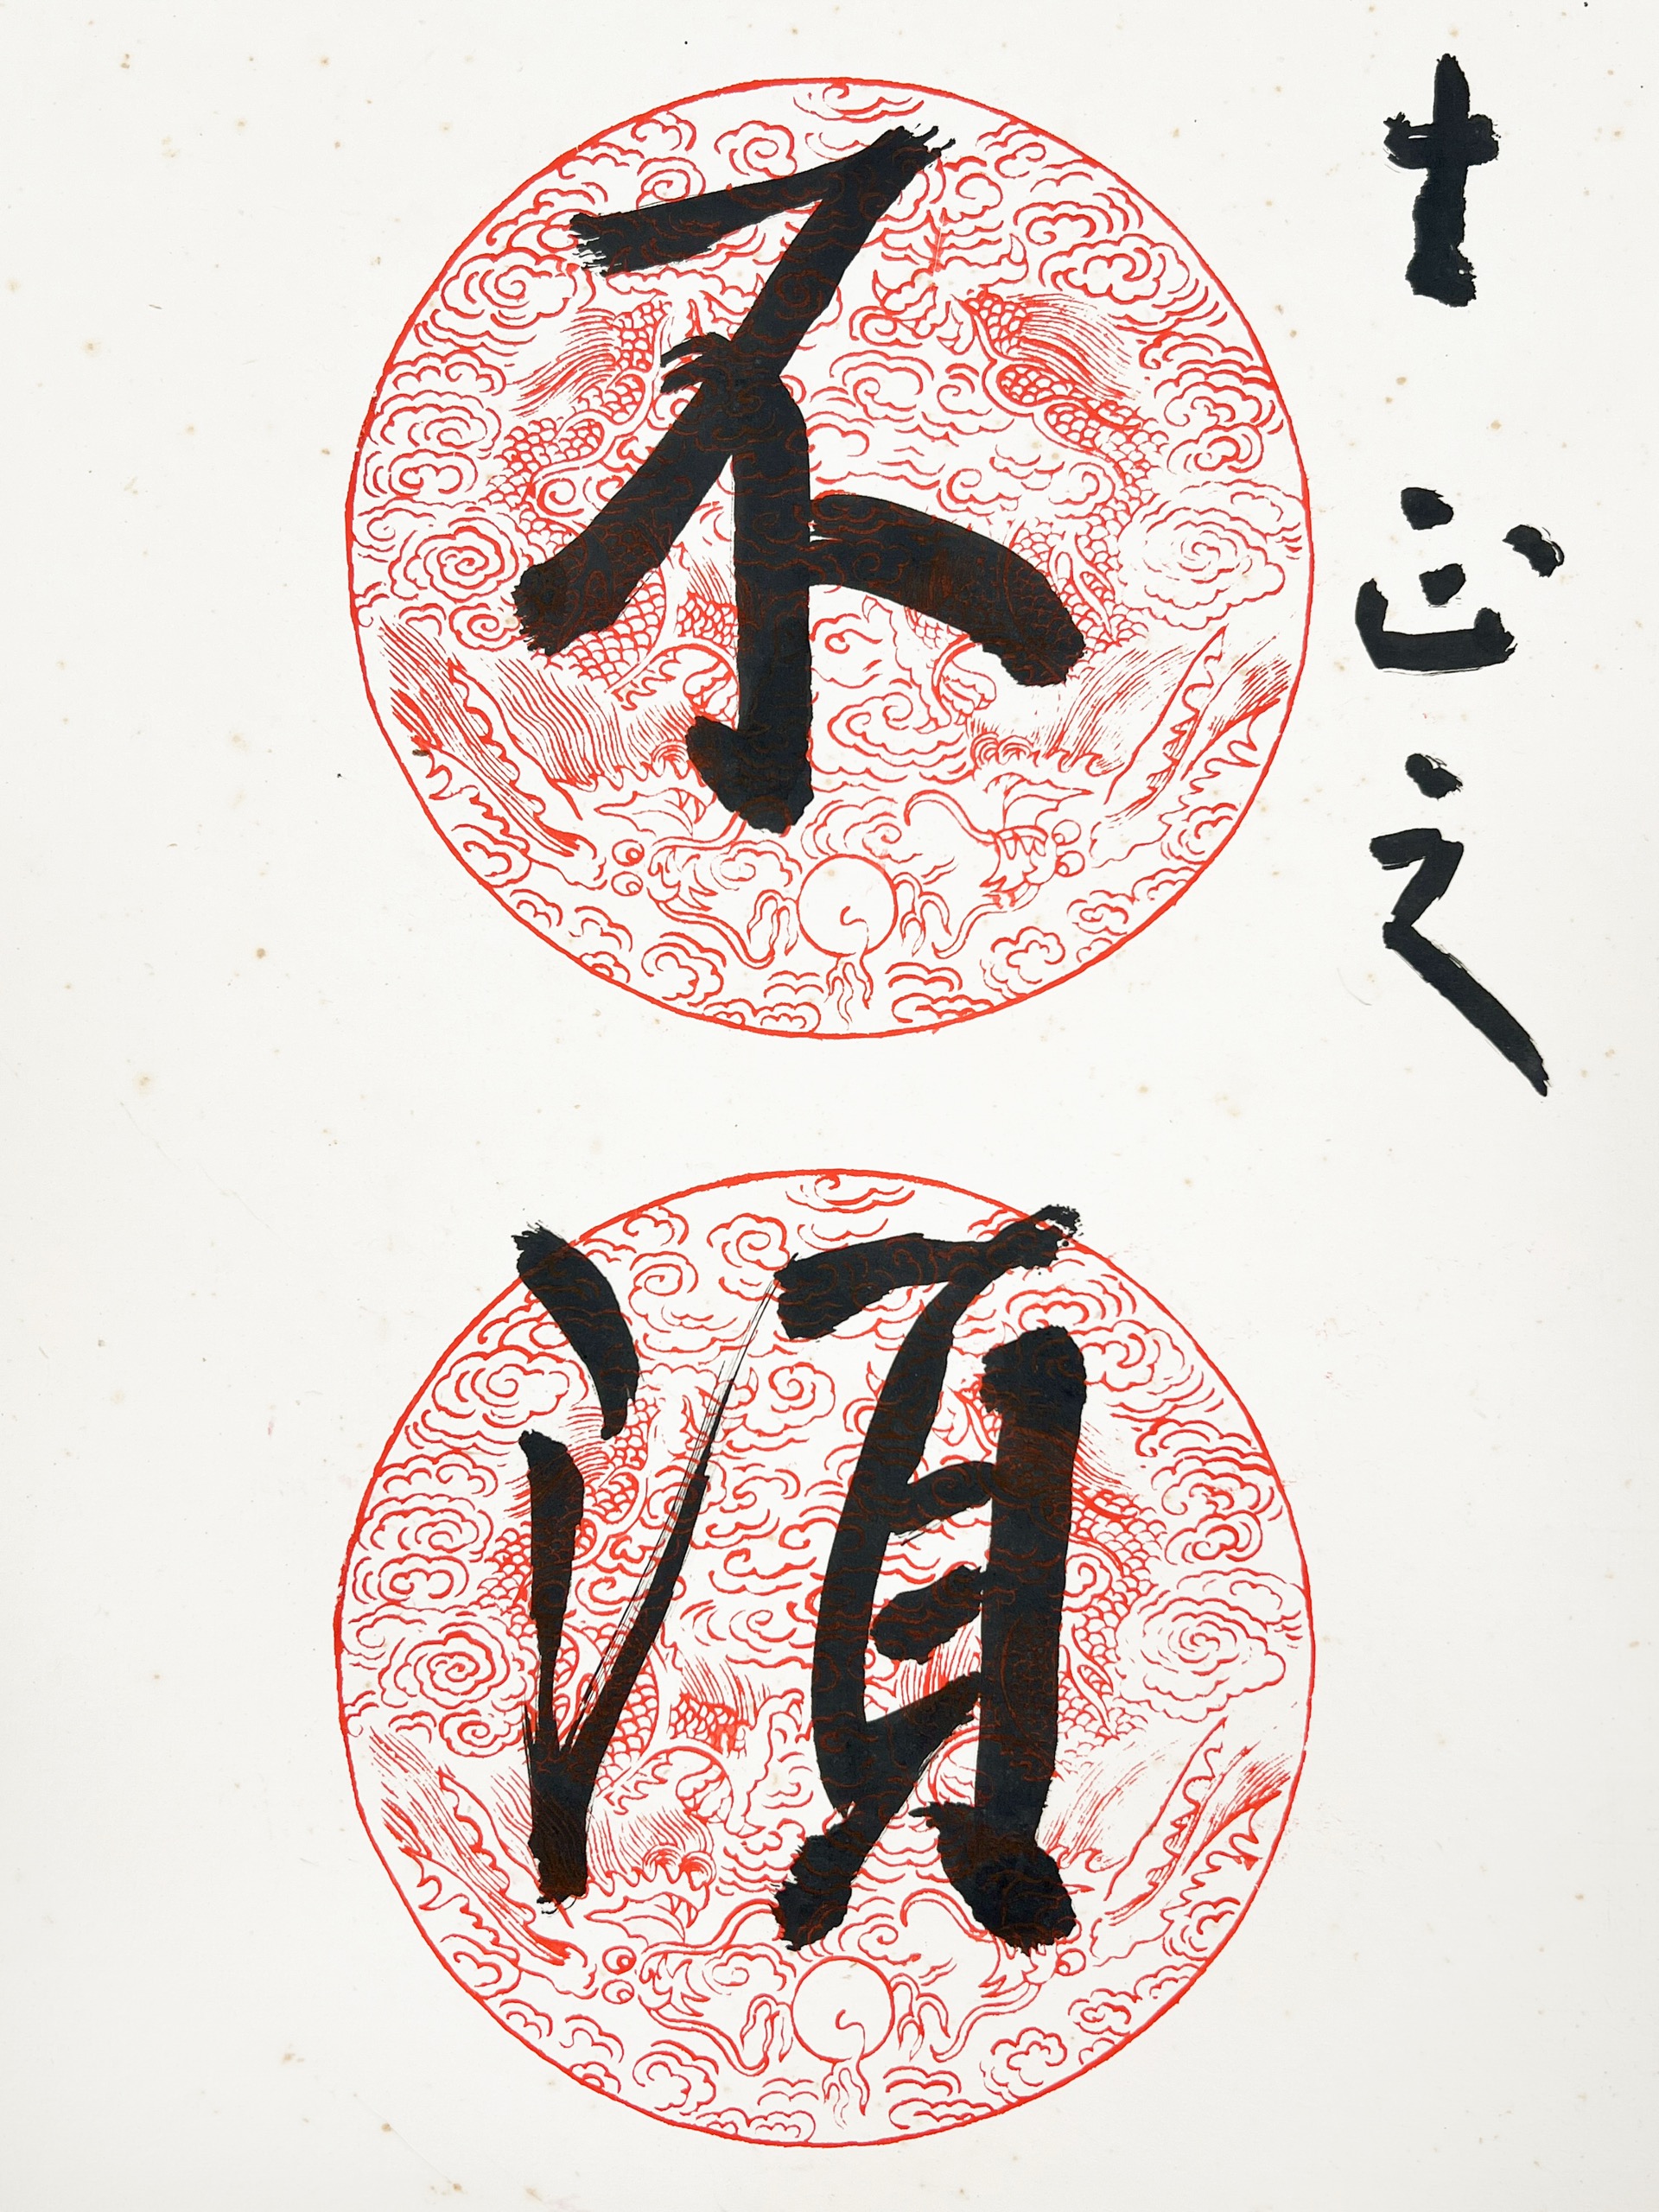 十心之
不須